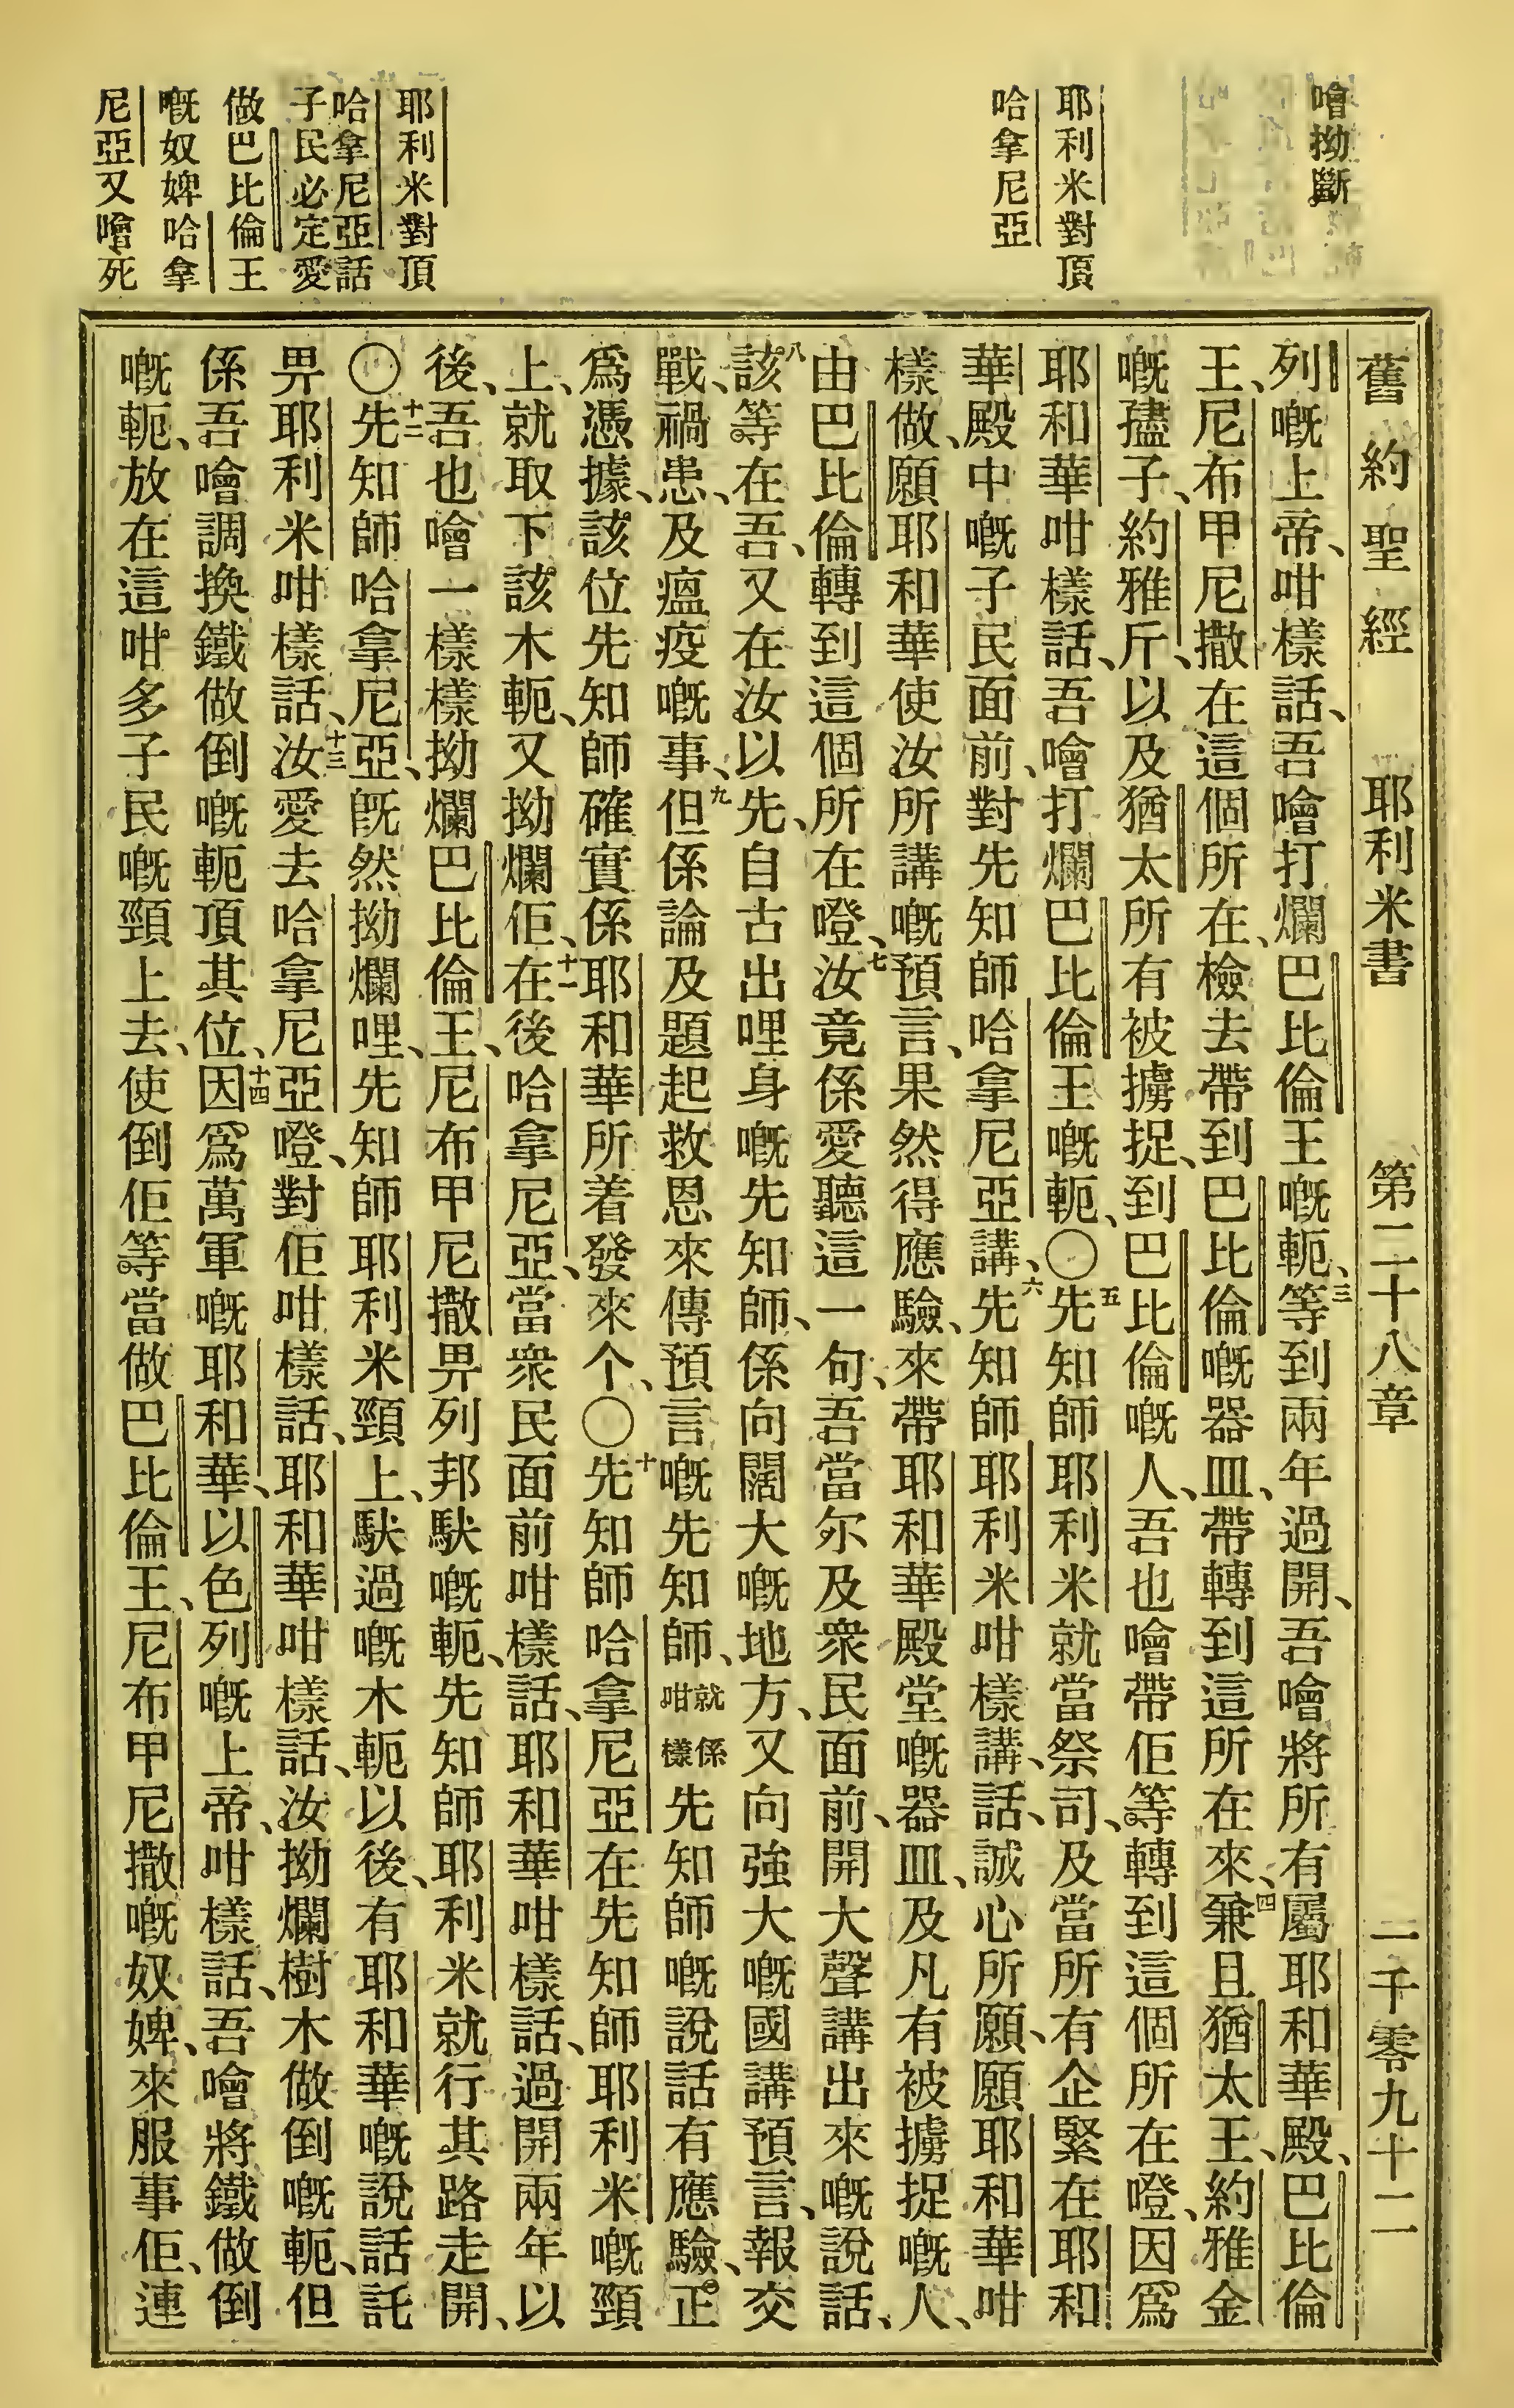 噲拗斷
耶利米對頂
哈拿尼亞
耶利米對頂
哈拿尼亞話
子民必定愛
做巴比倫王
嘅奴婢哈拿
尼亞又噲死
舊約聖經 耶利米書 第二十八章 二千零九十二
列嘅上帝、咁樣話、吾噲打爛巴比倫王嘅軛、三等到兩年過開、吾噲將所有屬耶和華殿、巴比倫
王、尼布甲尼撒在這個所在、檢去帶到巴比倫嘅器皿、帶轉到這所在來、四兼且猶太王、約雅金
嘅孻子、約雅斤、以及猶太所有被擄捉、到巴比倫嘅人、吾也噲帶佢等轉到這個所在噔、因爲
耶和華咁樣話、吾噲打爛巴比倫王嘅軛、〇五先知師耶利米就當祭司、及當所有企緊在耶和
華殿中嘅子民面前、對先知師哈拿尼亞講、六先知師耶利米咁樣講、話、誠心所願、願耶和華咁
樣做、願耶和華使汝所講嘅預言、果然得應驗、來帶耶和華殿堂嘅器皿、及凡有被擄捉嘅人、
由巴比倫轉到這個所在噔、七汝竟係愛聽這一句、吾當尔及眾民面前、開大聲講出來嘅說話、
八該等在吾、又在汝以先、自古出哩身嘅先知師、係向闊大嘅地方、又向強大嘅國講預言、報交
戰、禍患、及瘟疫嘅事、九但係論及題起救恩來傳預言嘅先知師、就係咁樣先知師嘅說話有應驗、正
爲憑據、該位先知師確實係耶和華所着發來个、〇十先知師哈拿尼亞在先知師耶利米嘅頸
上、就取下該木軛、又拗爛佢、十一在後哈拿尼亞、當眾民面前咁樣話、耶和華咁樣話、過開兩年以
後、吾也噲一樣樣拗爛巴比倫王、尼布甲尼撒畀列邦䭾嘅軛、先知師耶利米就行其路走開、
〇十二先知師哈拿尼亞、旣然拗爛哩、先知師耶利米頸上、䭾過嘅木軛以後、有耶和華嘅說話託
畀耶利米咁樣話、十三汝愛去哈拿尼亞噔、對佢咁樣話、耶和華咁樣話、汝拗爛樹木做倒嘅軛、但
係吾噲調換鐵做倒嘅軛頂其位、十四因爲萬軍嘅耶和華、以色列嘅上帝、咁樣話、吾噲將鐵做倒
嘅軛、放在這咁多子民嘅頸上去、使倒佢等當做巴比倫王、尼布甲尼撒嘅奴婢、來服事佢、連